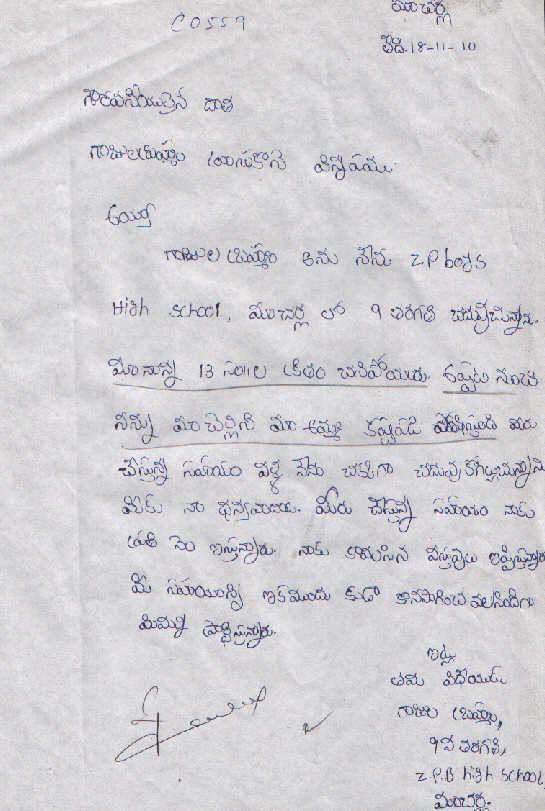 C0559
మాచర్ల
తేది. 18-11-10
గౌరవనీయులైన దాత
గాజుల బ్రహ్మం వ్రాసుకొనే విన్నపము.
అయ్యా
గాజుల బ్రహ్మం అను నేను Z.P boys
High school, మాచర్ల లో 9 తరగతి చదువుచున్నాను.
మా నాన్న 13 సం॥ల క్రితం చనిపోయారు. అప్పటి నుండి
నన్ను మా చెల్లిని మా అమ్మ కష్టపడి పోషిస్తుంది మీరు
చేస్తున్న సహాయం వల్ల నేను చక్కగా చదువుకోగల్గుచున్నాను
మీకు నా ధన్యవాదాలు. మీరు చేస్తున్న సహాయం నాకు
ప్రతి నెల ఇస్తున్నారు. నాకు కావలసిన వస్తువులు ఇప్పిస్తున్నారు
మీ సహాయాన్ని ఇకముందు కూడా కొనసాగించ వలసిందిగా
మిమ్మల్ని ప్రార్థిస్తున్నాను.
ఇట్లు
తమ విధేయుడు
గాజుల బ్రహ్మం,
9వ తరగతి,
Z.P.B High school
మాచర్ల.